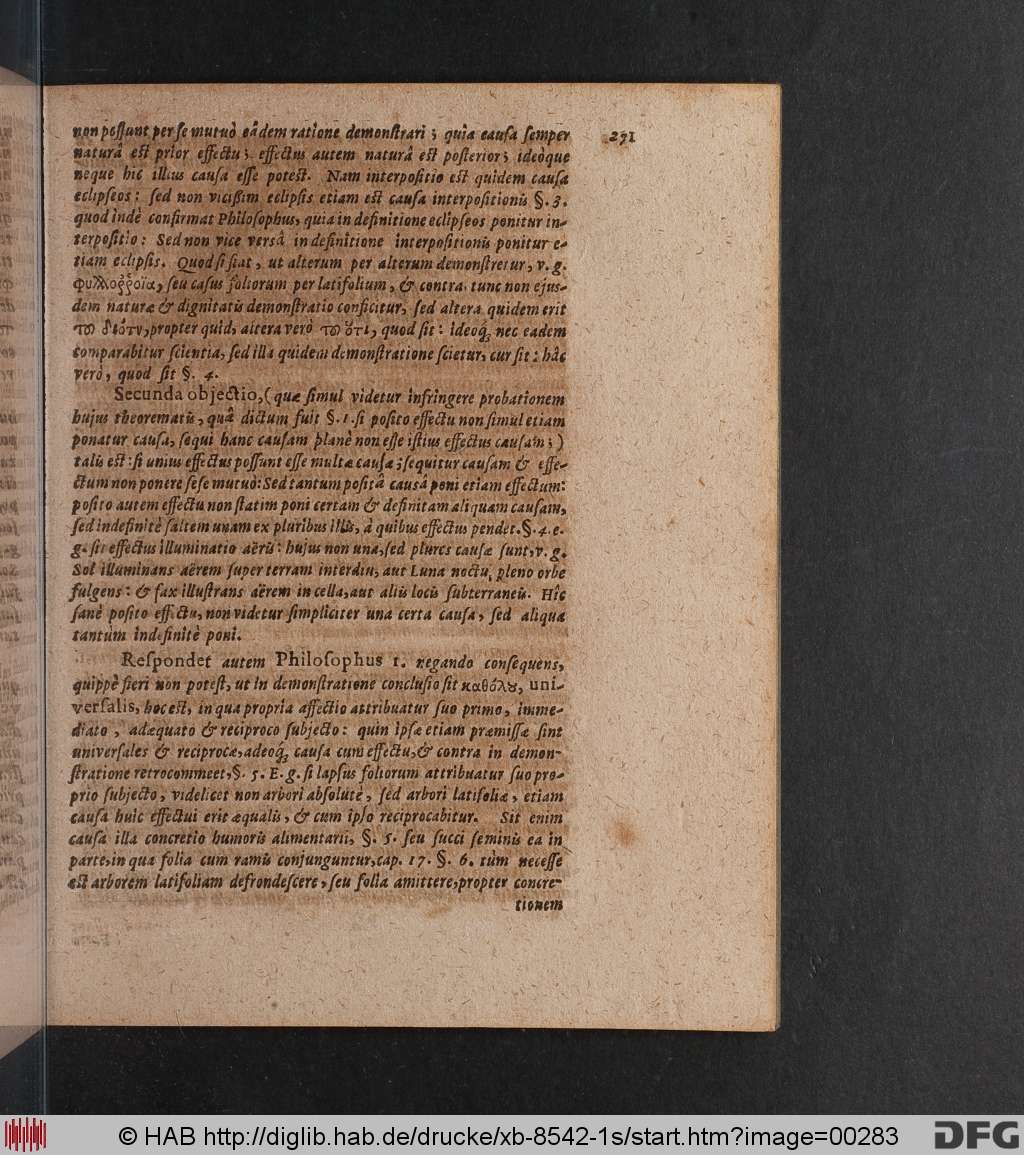 291
non possunt per se mutuò eâdem ratione demonstrari; quia causa semper
naturâ est prior effectu; effectus autem naturâ est posterior; ideòque
neque hic illius causa esse potest. Nam interpositio est quidem causa
eclipseos; sed non vicissim eclipsis etiam est causa interpositionis §. 3.
quod indè confirmat Philosophus, quia in definitione eclipseos ponitur in-
terpositio: Sed non vice versâ in definitione interpositionis ponitur e-
tiam eclipsis. Quod si fiat, ut alterum per alterum demonstretur, v. g.
φυλλοῤῥοΐα, seu casus foliorum per latifolium, & contra, tunc non ejus-
dem naturæ & dignitatis demonstratio conficitur, sed altera quidem erit
τȣ διότι, propter quid, altera verò τȣ ὅτι, quod sit: ideoq; nec eadem
comparabitur scientia, sed illa quidem demonstratione scietur, cur sit: hâc
verò, quod sit §. 4.
Secunda objectio, (quæ simul videtur infringere probationem
hujus theorematis, quâ dictum fuit §. 1. si posito effectu non simul etiam
ponatur causa, sequi hanc causam planè non esse istius effectus causam;)
talis est: si unius effectus possunt esse multæ causæ; sequitur causam & effe-
ctum non ponere sese mutuò: Sed tantum positâ causâ poni etiam effectum:
posito autem effectu non statim poni certam & definitam aliquam causam,
sed indefinitè saltem unam ex pluribus illis, à quibus effectus pendet. §. 4. e.
g. sit effectus illuminatio aëris: hujus non una, sed plures causæ sunt, v. g.
Sol illuminans aërem super terram interdiu, aut Luna noctu, pleno orbe
fulgens: & fax illustrans aërem in cella, aut aliis locis subterraneis. Hîc
sanè posito effectu, non videtur simpliciter una certa causa, sed aliqua
tantùm indefinitè poni.
Respondet autem Philosophus 1. negando consequens,
quippè fieri non potest, ut in demonstratione conclusio sit καθόλȣ, uni-
versalis, hoc est, in qua propria affectio attribuatur suo primo, imme-
diato, adæquato & reciproco subjecto: quin ipsæ etiam præmissæ sint
universales & reciprocæ, adeoq; causa cum effectu, & contra in demon-
stratione retrocommeet, §. 5. E. g. si lapsus foliorum attribuatur suo pro-
prio subjecto, videlicet non arbori absolutè, sed arbori latifoliæ, etiam
causa huic effectui erit æqualis, & cum ipso reciprocabitur. Sit enim
causa illa concretio humoris alimentarii, §. 5. seu succi seminis ea in
parte, in qua folia cum ramis conjunguntur, cap. 17. §. 6. tùm necesse
est arborem latifoliam defrondescere, seu folia amittere, propter concre-
tionem
© HAB http://diglib.hab.de/drucke/xb-8542-1s/start.htm?image=00283
DFG